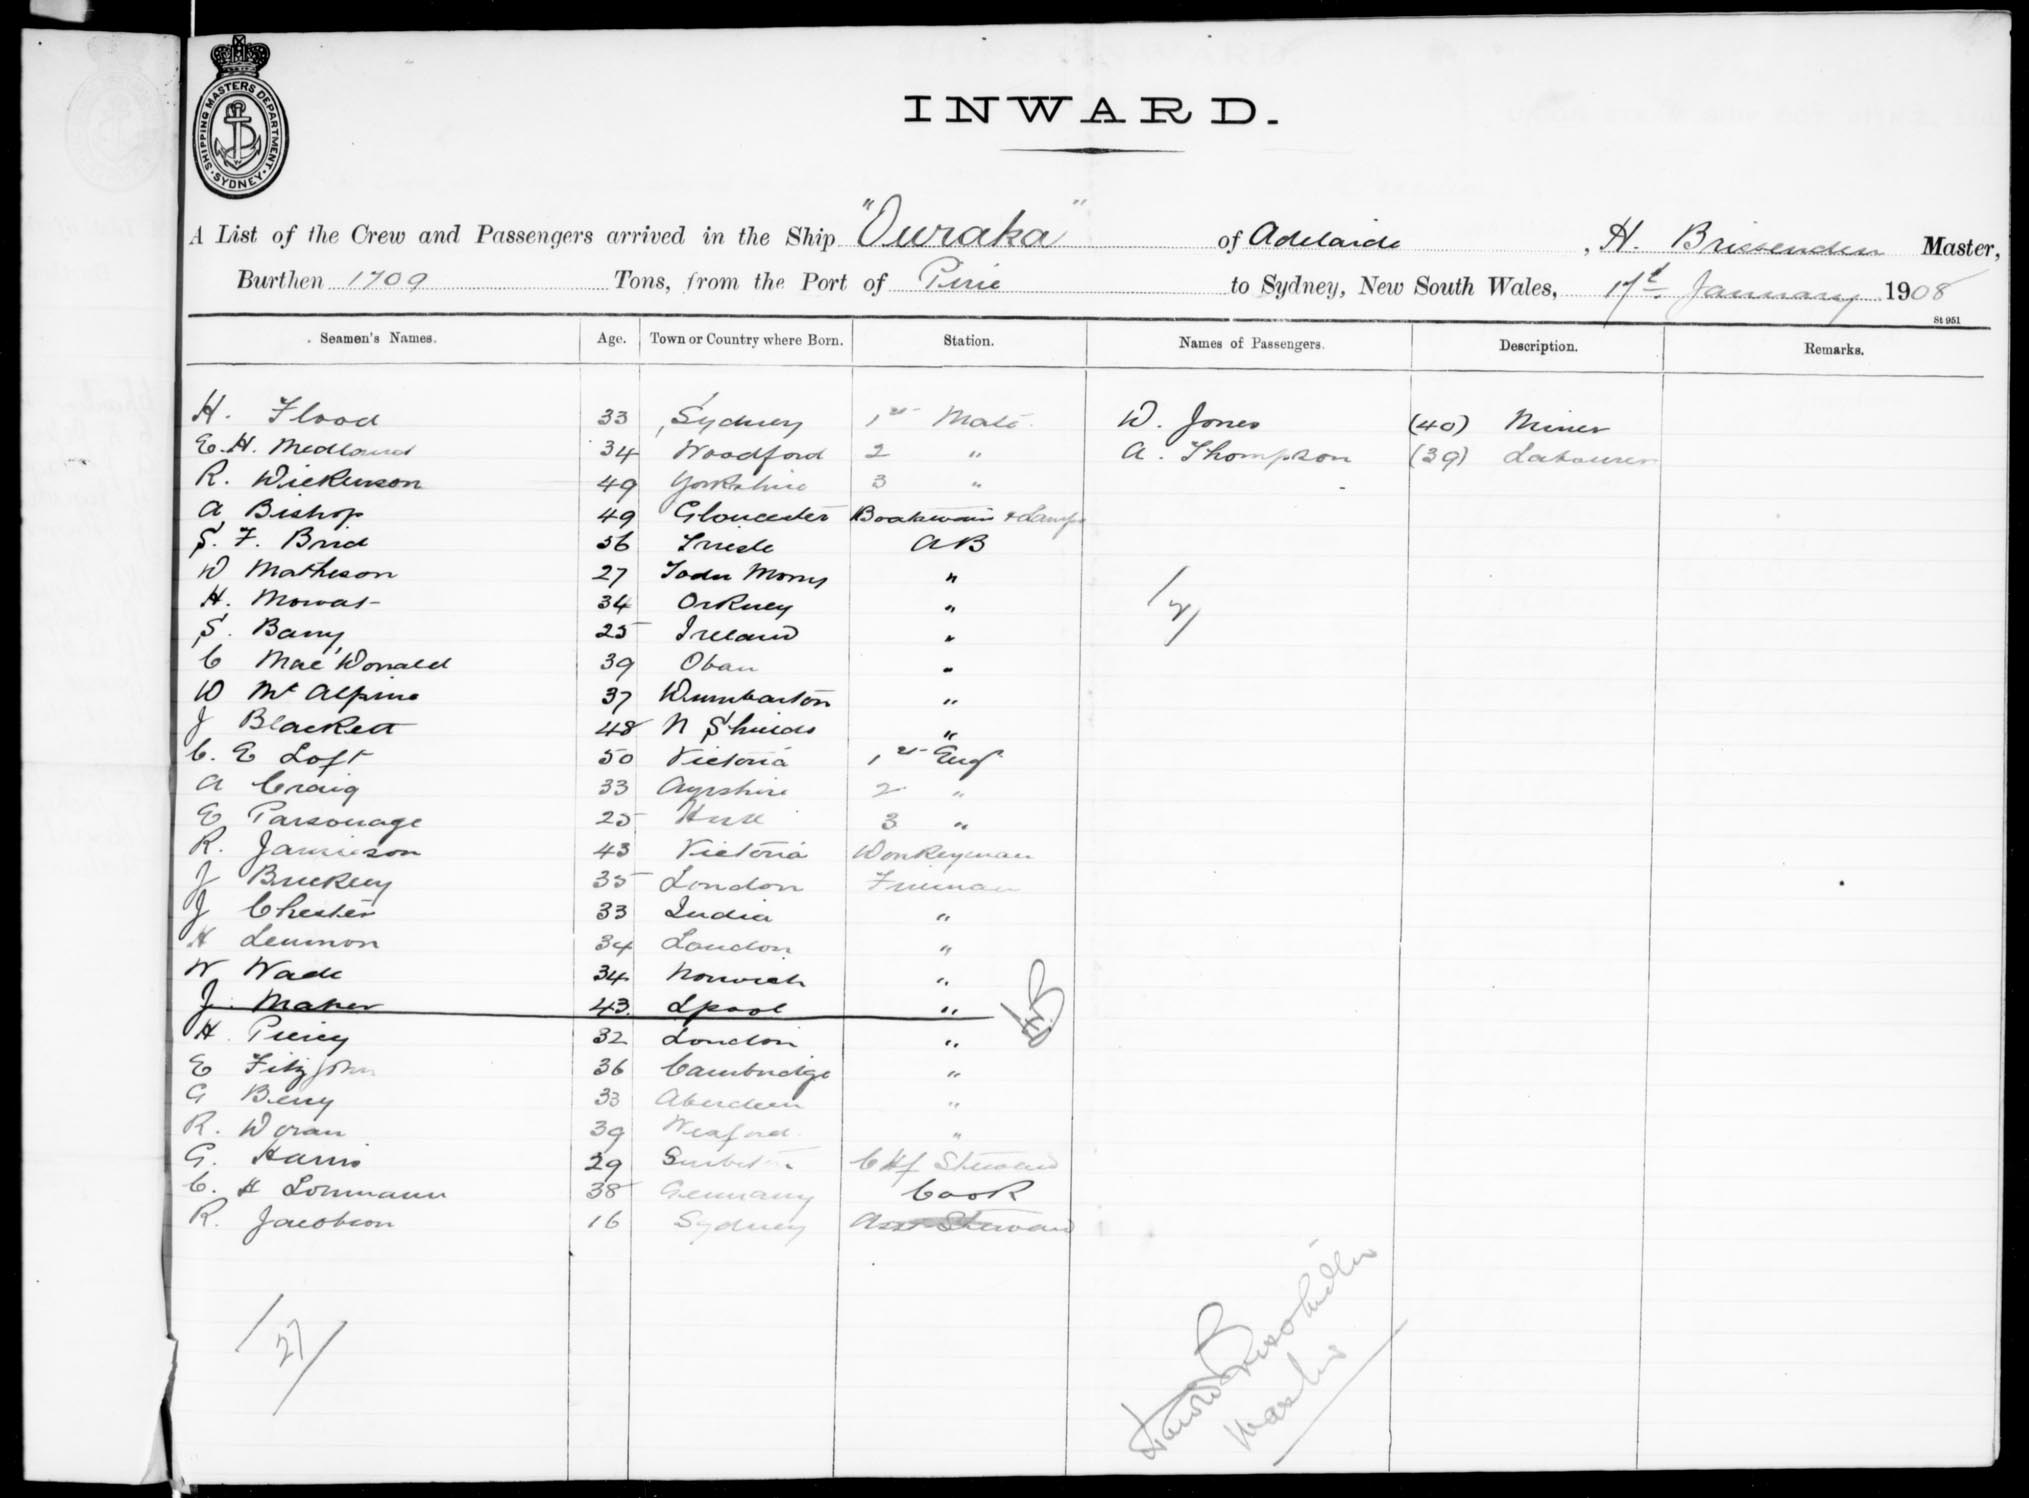 SHIPPING MASTERS DEPARTMENT. SYDNEY.
INWARD.
A List of the Crew and Passengers arrived in the Ship "Ouraka" of Adelaide, H. Brissenden Master,
Burthen 1709 Tons, from the Port of Pirie to Sydney, New South Wales, 17th January 1908
St 951
Seamen's Names. Age. Town or Country where Born. Station. Names of Passengers. Description. Remarks.
H. Flood 33 Sydney 1st Mate W. Jones (40) Miner
E. H. Medland 34 Woodford 2 " A. Thompson (39) Labourer
R. Dickinson 49 Yorkshire 3 "
A Bishop 49 Gloucester Boatswain & Lamps
S. F. Brid 56 AB
D Matheson 27 "
H. Mowat 34 Orkney "
S. Barry 25 Ireland "
C MacDonald 39 Oban "
D McAlpine 37 Dumbarton "
J Blackett 48 N Shields "
C. E Loft 50 Victoria 1st Eng
A Craig 33 Ayrshire 2 "
E Parsonage 25 Hull 3 "
R. Jamieson 43 Victoria Donkeyman
J Buckley 35 London Fireman
J Chester 33 India "
H Lemmon 34 London "
W Wade 34 Norwich "
J. Maher 43 Lpool " HB
H. Piercy 32 London "
E Fitzjohn 36 Cambridge "
G Berry 33 Aberdeen "
R. Doran 39 Wexford "
G. Harris 29 Surbiton Chf Steward
C. H Lohmann 38 Germany Cook
R. Jacobson 16 Sydney Asst Steward
/2/
/27/
Brissenden
Master